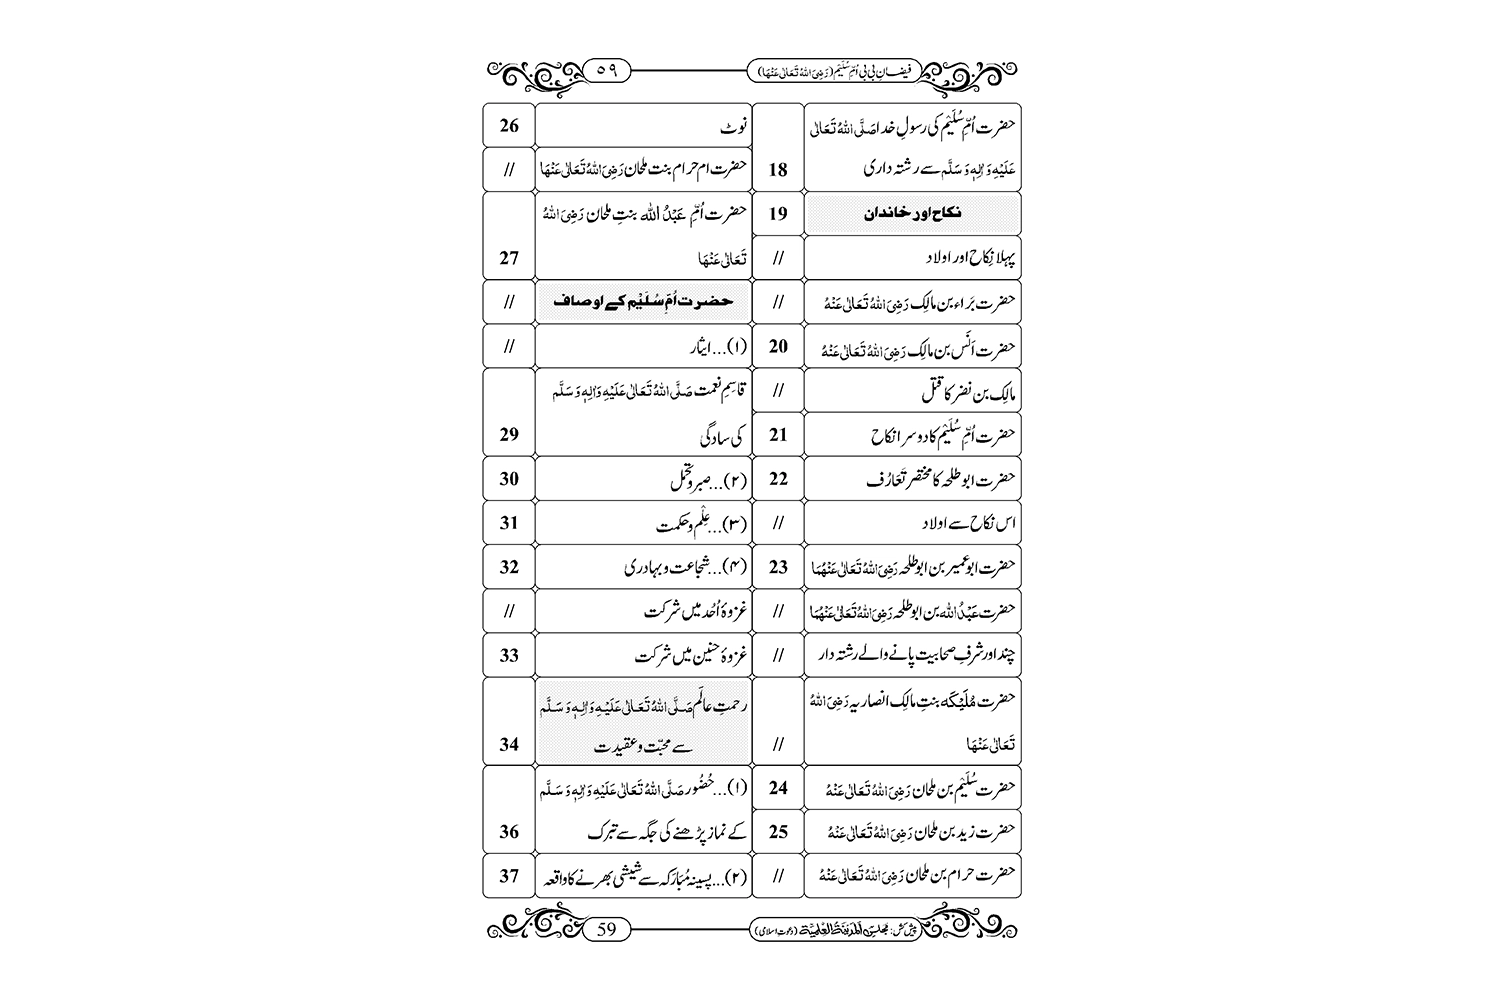 فیضانِ بی بی اُمِّ سُلَیْم (رَضِیَ اللہُ تَعَالٰی عَنْہَا)
٥٩
حضرت اُمِّ سُلَیْم کی رسولِ خدا صَلَّی اللہُ تَعَالٰی
عَلَیْہِ وَاٰلِہٖ وَسَلَّم سے رشتہ داری 18
نکاح اور خاندان 19
پہلا نِکاح اور اولاد //
حضرت بَراء بن مالِک رَضِیَ اللہُ تَعَالٰی عَنْہُ //
حضرت اَنَس بن مالِک رَضِیَ اللہُ تَعَالٰی عَنْہُ 20
مالِک بن نضر کا قتل //
حضرت اُمِّ سُلَیْم کا دوسرا نکاح 21
حضرت ابو طلحہ کا مختصر تَعَارُف 22
اس نکاح سے اولاد //
حضرت ابو عمیر بن ابو طلحہ رَضِیَ اللہُ تَعَالٰی عَنْہُمَا 23
حضرت عَبْدُ اللہ بن ابو طلحہ رَضِیَ اللہُ تَعَالٰی عَنْہُمَا //
چند اور شرفِ صحابیت پانے والے رشتہ دار //
حضرت مُلَیْکَہ بنتِ مالِک انصاریہ رَضِیَ اللہُ
تَعَالٰی عَنْہَا //
حضرت سُلَیْم بن ملحان رَضِیَ اللہُ تَعَالٰی عَنْہُ 24
حضرت زید بن ملحان رَضِیَ اللہُ تَعَالٰی عَنْہُ 25
حضرت حرام بن ملحان رَضِیَ اللہُ تَعَالٰی عَنْہُ //
نوٹ 26
حضرت ام حرام بنت ملحان رَضِیَ اللہُ تَعَالٰی عَنْہَا //
حضرت اُمِّ عَبْدُ اللہ بنتِ ملحان رَضِیَ اللہُ
تَعَالٰی عَنْہَا 27
حضرت اُمِّ سُلَیْم کے اوصاف //
(۱)... ایثار //
قاسِمِ نعمت صَلَّی اللہُ تَعَالٰی عَلَیْہِ وَاٰلِہٖ وَسَلَّم
کی سادگی 29
(۲)... صبر و تحمل 30
(۳)... عِلْم و حکمت 31
(۴)... شجاعت و بہادری 32
غزوۂ اُحُد میں شرکت //
غزوۂ حنین میں شرکت 33
رحمتِ عالَم صَلَّی اللہُ تَعَالٰی عَلَیْہِ وَاٰلِہٖ وَسَلَّم
سے محبّت و عقیدت 34
(۱)... حُضُور صَلَّی اللہُ تَعَالٰی عَلَیْہِ وَاٰلِہٖ وَسَلَّم
کے نماز پڑھنے کی جگہ سے تبرک 36
(۲)... پسینہ مُبَارَکہ سے شیشی بھرنے کا واقعہ 37
پیش کش: مجلس اَلْمَدِیْنَۃُ الْعِلْمِیَّۃ (دعوتِ اسلامی)
59